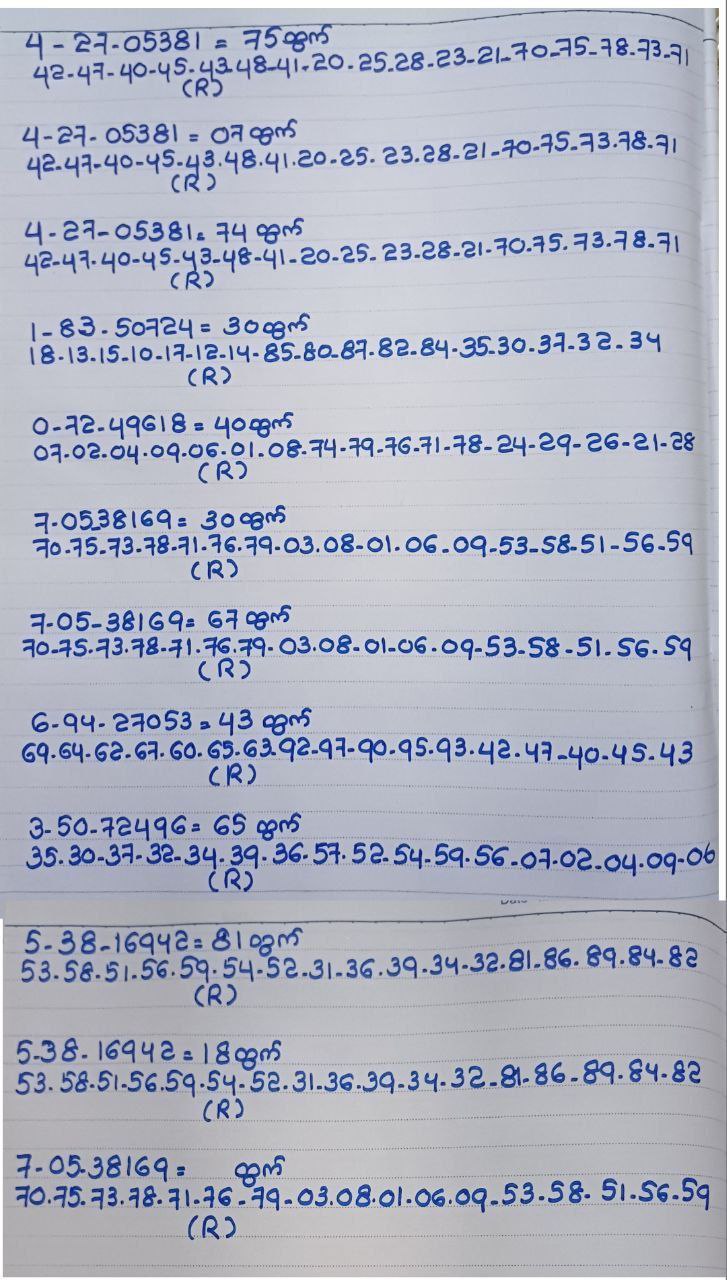 4-27-05381 = 75 യ്യൻ
42-47-40-45-43-48-41-20-25.28.23-21-70-75-78.73-71
(R)
4-27-05381 = 07
42-47-40-45-43.48.41.20-25. 23.28-21-70-75-73.78.71
(R)
4-27-05381= 74
42-47.40-45-43-48-41-20-25-23-28-21-70.75.73-78-71
(R)
1-83.50724= 30
18-13.15-10-17-12-14-85-80-87.82.84.35-30-37-32.34
(R)
0-72-49618 = 40
07.02.04.09.06.01.08.74-79-76.71-78-24-29-26-21-28
(R)
7-0538169= 30
70.75.73-78-71.76.79-03.08-01.06.09-53-58-51-56-59
(R)
7-05-38169= 67
70-75.73.78-71.76.79-03.08-01-06.09-53-58-51.56.59
(R)
6-94-27053=43
69.64.62.67.60.65.63.92-97-90-95.93.42.47-40.45.43
(R)
3-50-72496= 65
35.30-37-32-34.39.36.57.52.54-59.56-07.02.04.09-06
(R)
5-38-16942= 81
53.58.51.56.59.54-52.31.36.39.34-32.81.86.89.84-82
(R)
5-38-16942=18
53.58.51-56.59.54-52.31.36.39-34-32-81.86-89.84.82
(R)
7-05.38169=
70.75.73.78.71-76-79-03.08.01.06.09.53.58-51.56.59
(R)